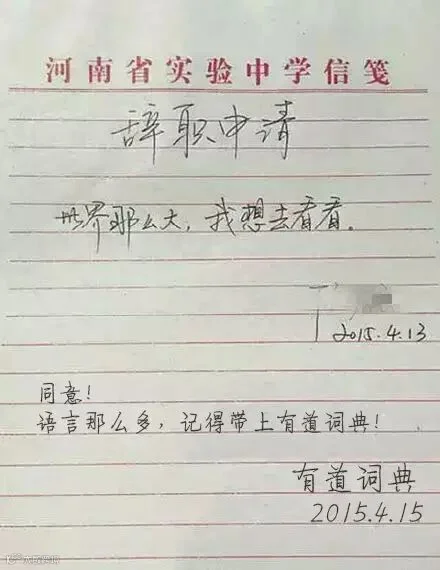 河南省实验中学信笺
辞职申请
世界那么大，我想去看看。
2015.4.13
同意！
语言那么多，记得带上有道词典！
有道词典
2015.4.15